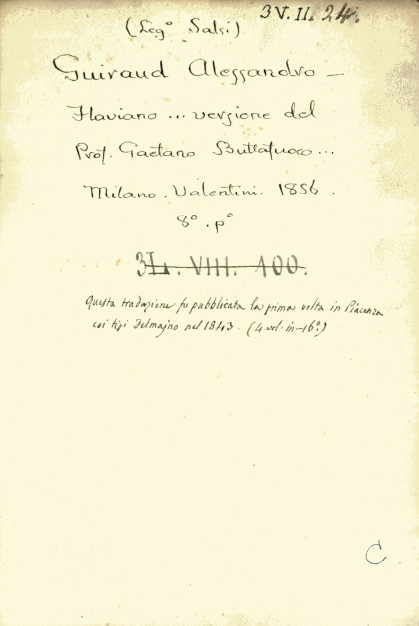 3 V. II. 24.
(Leg° Salsi)
Guiraud Alessandro —
Flaviano ... versione del
Prof. Gaetano Buttafuoco...
Milano. Valentini. 1856.
8°. p°
3L. VIII. 100.
Questa traduzione fu pubblicata la prima volta in Piacenza
coi tipi Delmajno nel 1843. (4 vol. in-16°.)
C